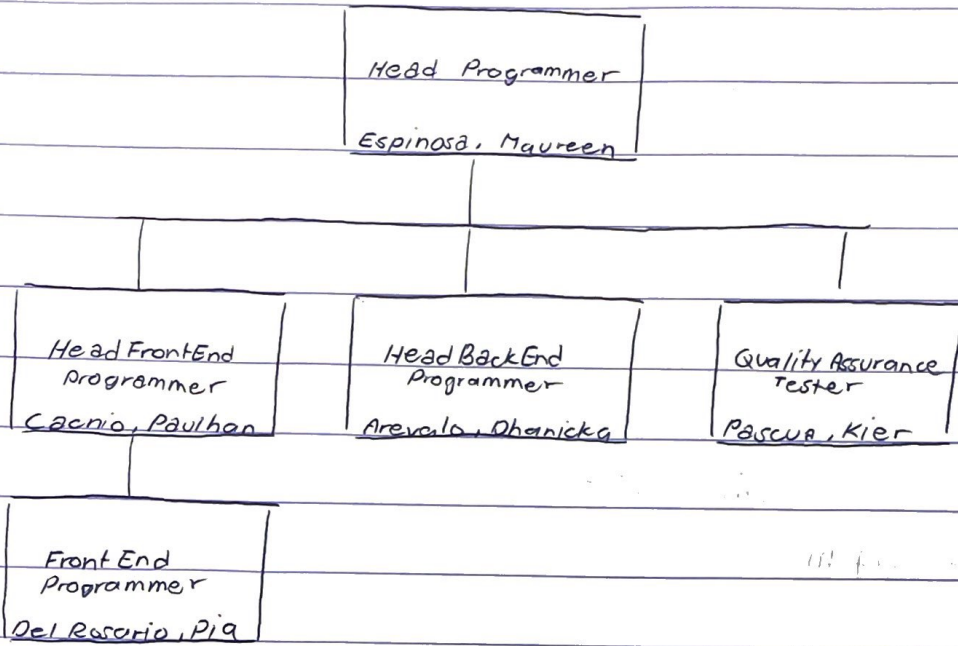 Head Programmer
Espinosa, Maureen
Head FrontEnd
Programmer
Cacnio, Paulhan
Head BackEnd
Programmer
Arevalo, Dhanicka
Quality Assurance
Tester
Pascua, Kier
Front End
Programmer
Del Rosario, Pia